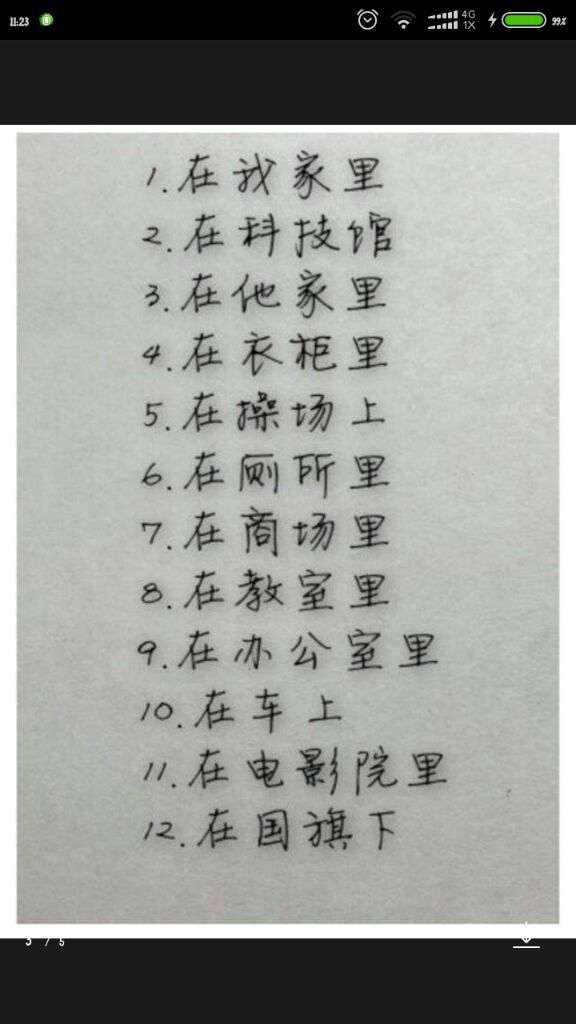 11:23
4G
1X
99%
1.在我家里
2.在科技馆
3.在他家里
4.在衣柜里
5.在操场上
6.在厕所里
7.在商场里
8.在教室里
9.在办公室里
10.在车上
11.在电影院里
12.在国旗下
3 / 5